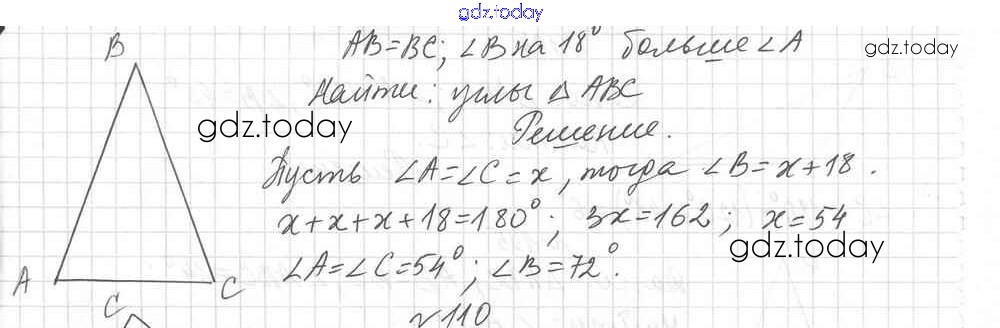 gdz.today
B
AB=BC; ∠B на 18° больше ∠A
gdz.today
Найти: углы △ ABC
gdz.today
Решение.
Пусть ∠A=∠C=x, тогда ∠B=x+18.
x+x+x+18=180°; 3x=162; x=54
gdz.today
∠A=∠C=54°; ∠B=72°.
A
C
C
~110